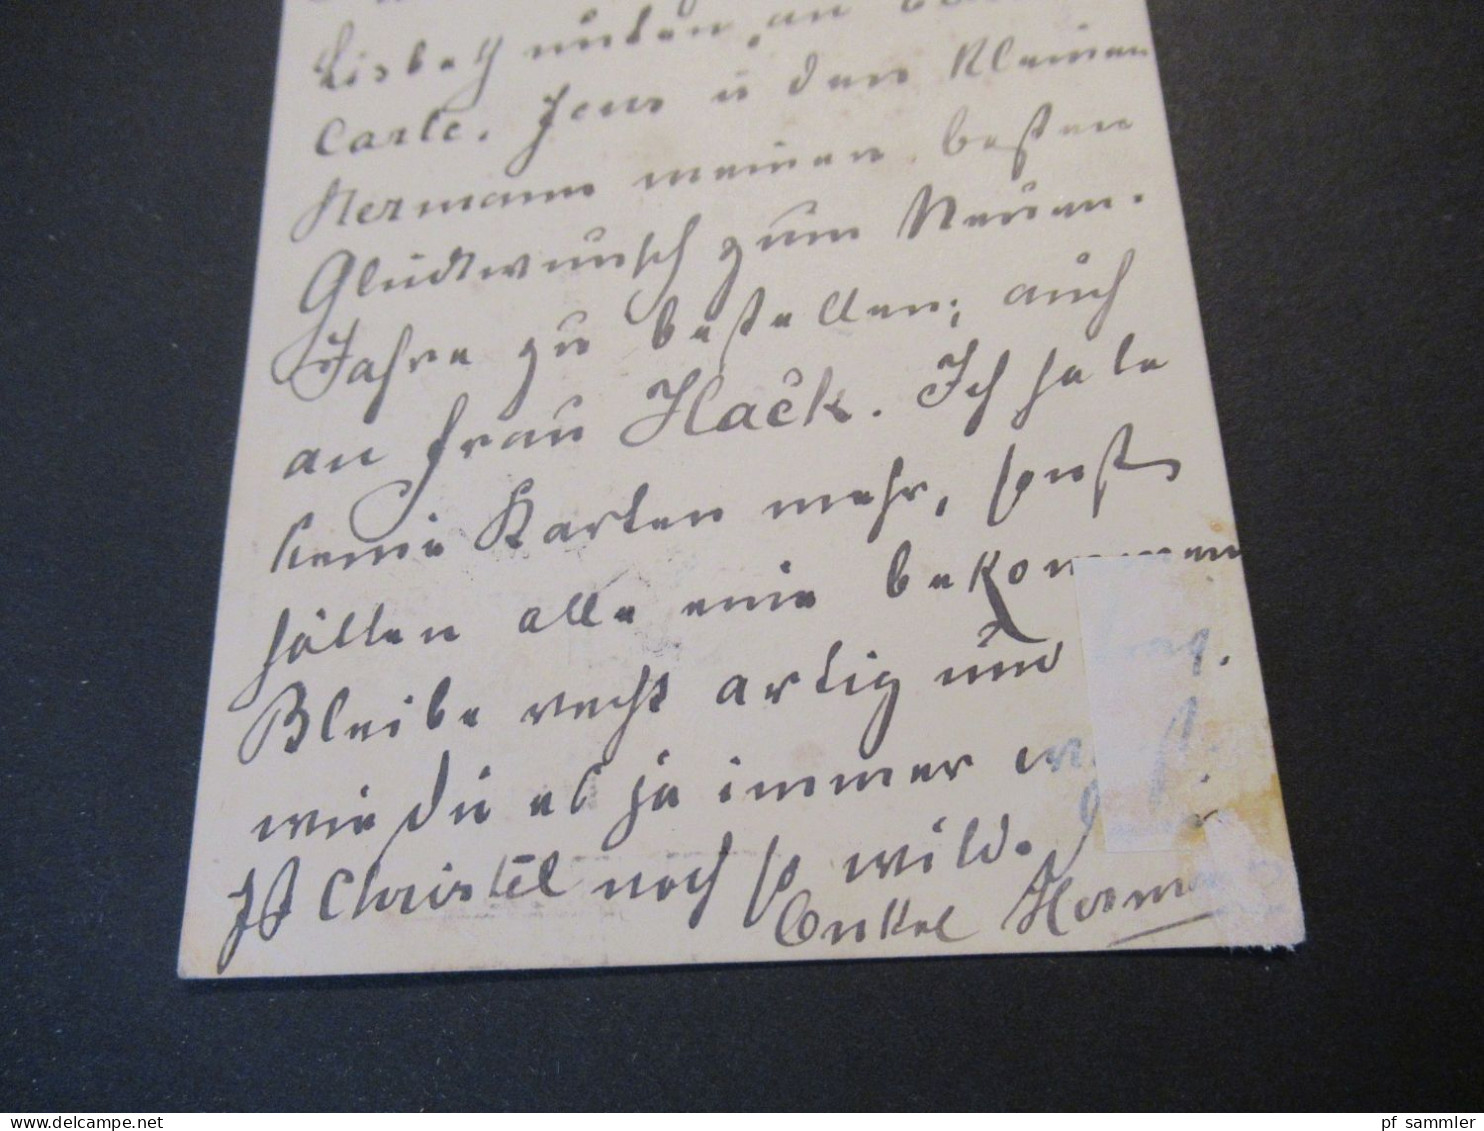 Lisbeth unten, an
Carle. Jens u den Kleinen
Hermann meinen besten
Glückwunsch zum Neuen.
Jahre zu bestellen; auch
an Frau Haĕk. Ich habe
keine Karten mehr, sonst
hätten alle eine bekommen
Bleibe recht artig und
wie du es ja immer
Ist Christel noch so wild.
Onkel Herm
pf_sammler